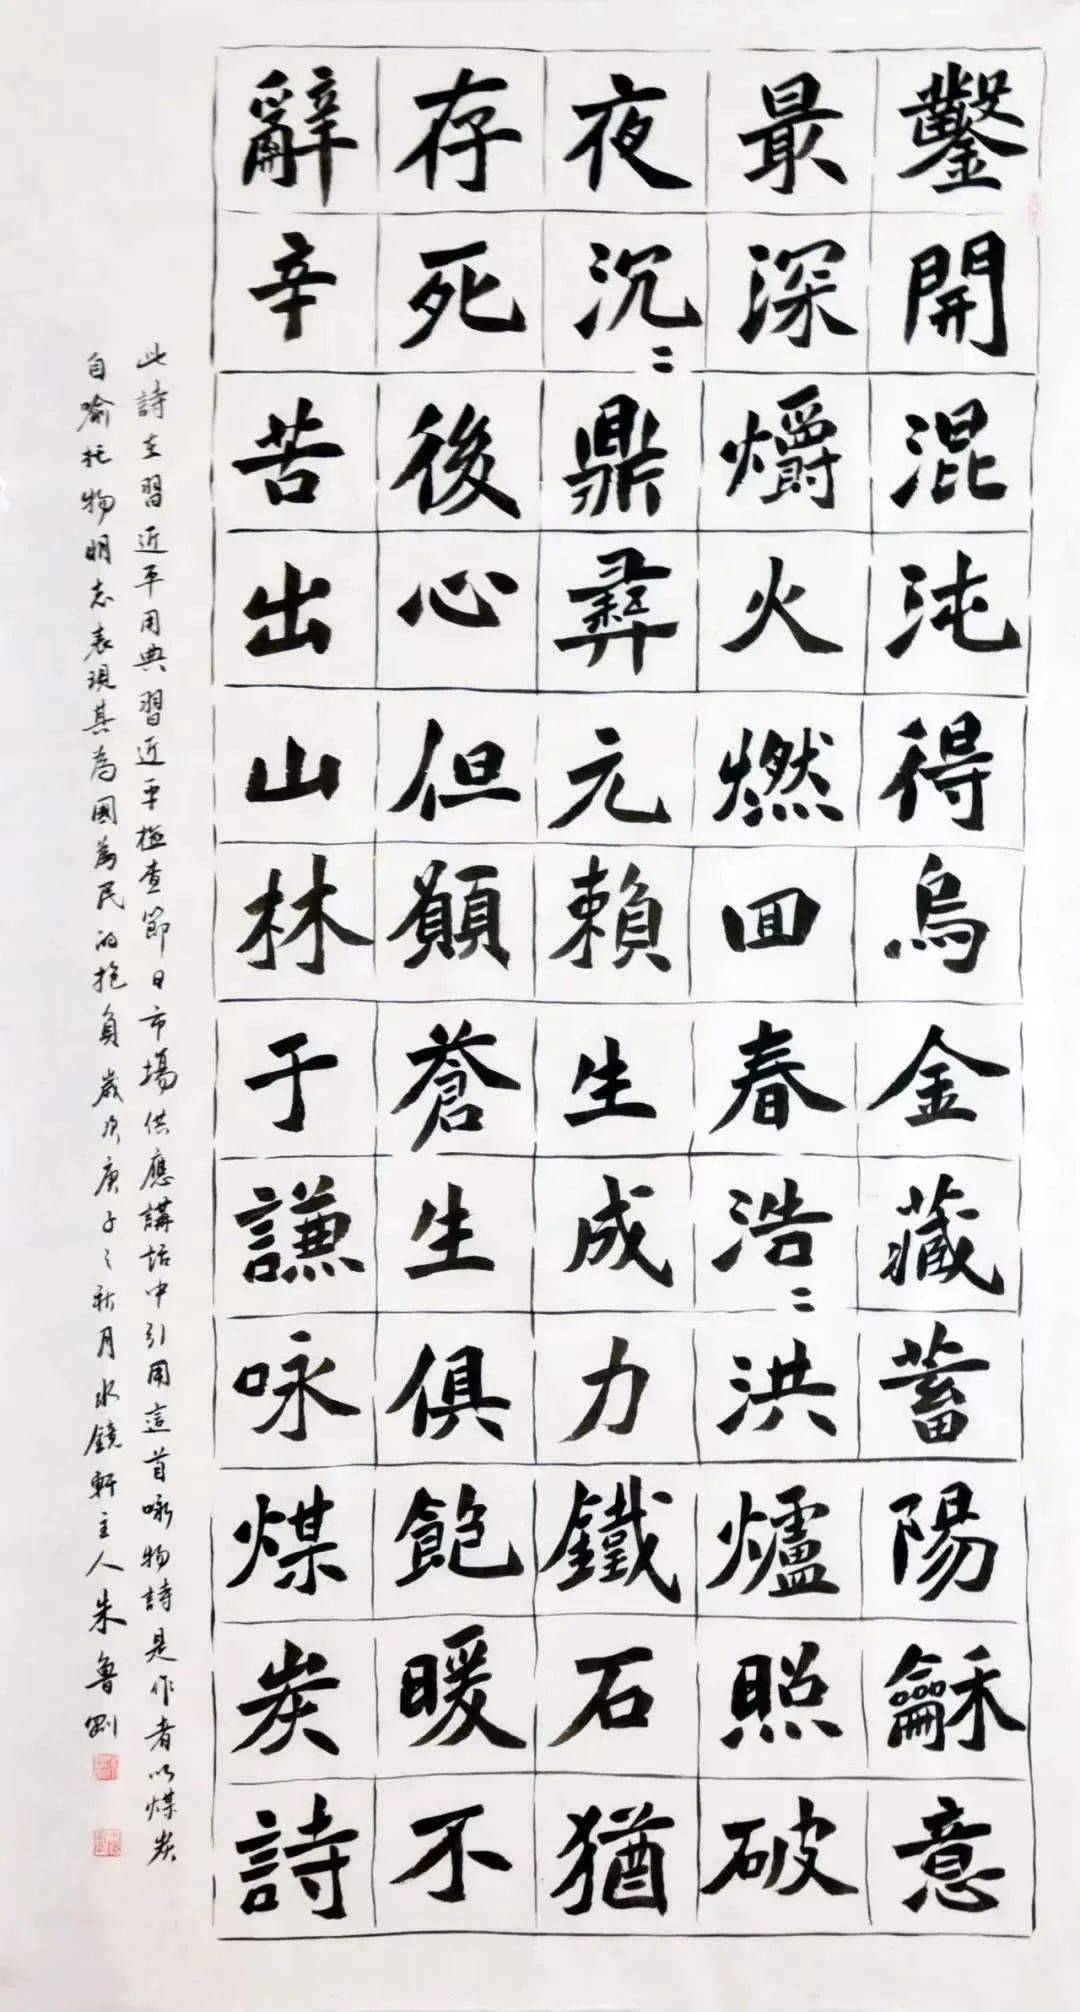 鑿開混沌得烏金藏蓄陽龢意
最深爝火燃回春浩〻洪爐照破
夜沉〻鼎彝元賴生成力鐵石猶
存死後心但願蒼生俱飽暖不
辭辛苦出山林于謙咏煤炭詩
此詩在習近平用典習近平檢查節日市場供應講話中引用這首咏物詩是作者以煤炭
自喻托物明志表現其為國為民的抱負歲次庚子之秋月水鏡軒主人朱魯剛